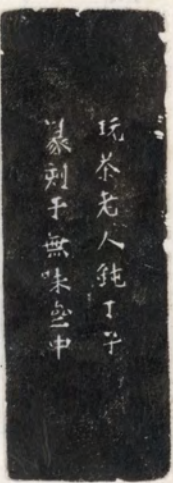 玩茶老人鈍丁等
篆刻于無味盦中